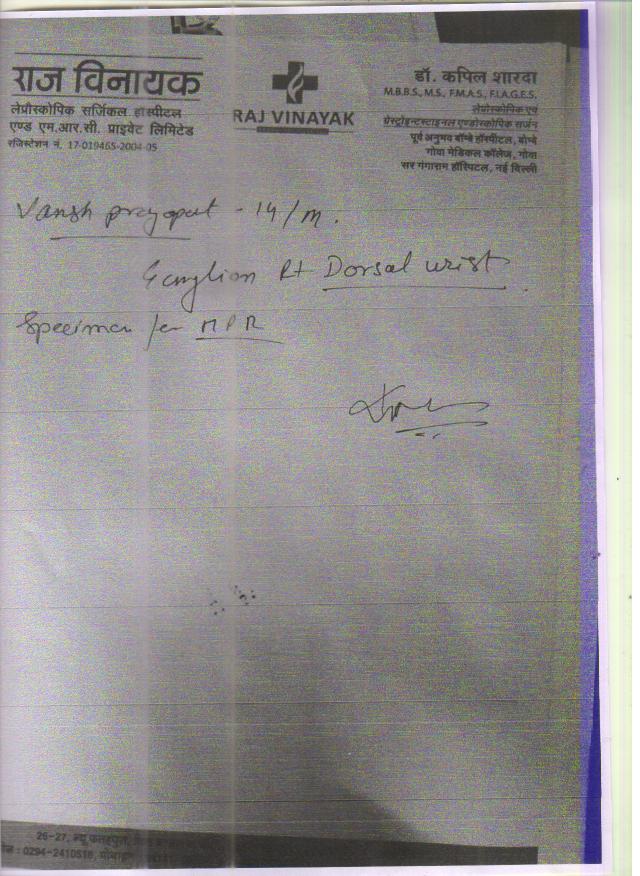 राज विनायक
लेप्रोस्कोपिक सर्जिकल हॉस्पीटल
एण्ड एम.आर.सी. प्राइवेट लिमिटेड
रजिस्टेशन नं. 17-019465-2004-05
RAJ VINAYAK
डॉ. कपिल शारदा
M.B.B.S., M.S., F.M.A.S., F.I.A.G.E.S.
लेप्रोस्कोपिक एवं
गेस्ट्रोइन्टेस्टाइनल एण्डोस्कोपिक सर्जन
पूर्व अनुभव बॉम्बे हॉस्पीटल, बोम्बे
गोवा मेडिकल कॉलेज, गोवा
सर गंगाराम हॉस्पिटल, नई दिल्ली
Vansh prayapat - 14/M.
Ganglion Rt Dorsal wrist
Specimen for HPR
26-27, न्यू फतहपुरा,
0294-2410516,